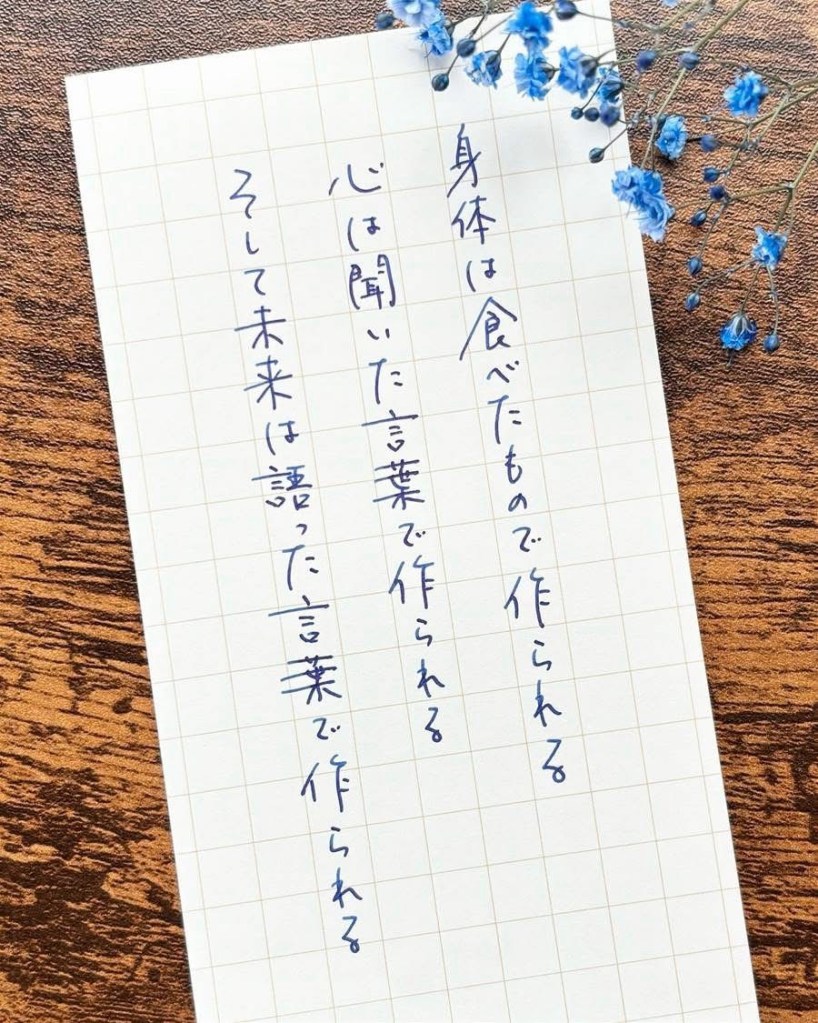 身体は食べたもので作られる
心は聞いた言葉で作られる
そして未来は語った言葉で作られる